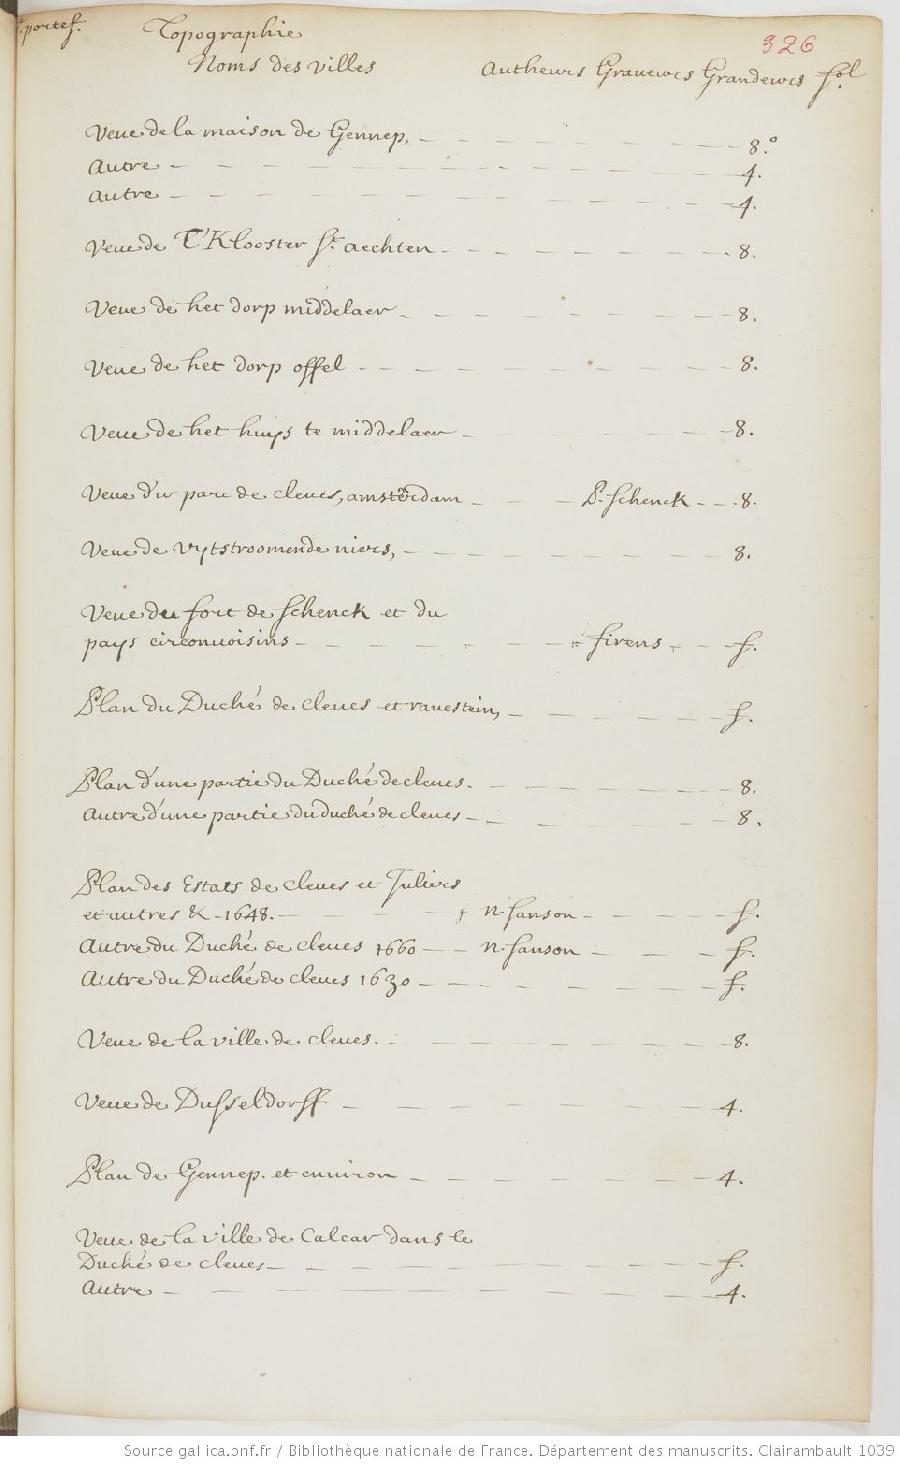 portef. Topographie 326
Noms des villes Autheurs Graueurs Grandeurs fol.
Veue de la maison de Gennep, 8.°
Autre 4.
Autre 4.
Veue de T'Klooster St. aechten 8.
Veue de het dorp middelaer 8.
Veue de het dorp offel 8.
Veue de het huys te middelaer 8.
Veue du parc de cleues, amsterdam P. Schenck 8.
Veue de vytstroomende niers, 8.
Veue du fort de Schenck et du
pays circonuoisins firens f.
Plan du Duché de cleues et rauestein, f.
Plan d'une partie du Duché de cleues. 8.
Autre d'une partie du duché de cleues 8.
Plan des Estats de cleues et Juliers
et autres &c 1648. n. sanson f.
Autre du Duché de cleues 1660 n. sanson f.
Autre du Duché de cleues 1630 f.
Veue de la ville de cleues. 8.
Veue de Dusseldorff 4.
Plan de Gennep. et enuiron 4.
Veue de la ville de Calcar dans le
Duché de cleues f.
Autre 4.
Source gallica.bnf.fr / Bibliothèque nationale de France. Département des manuscrits. Clairambault 1039